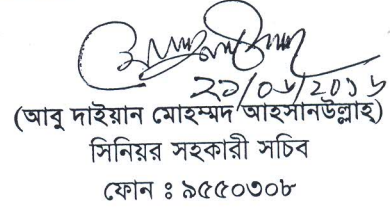 ২১/০৮/২০১৬
(আবু দাইয়ান মোহম্মদ আহসানউল্লাহ)
সিনিয়র সহকারী সচিব
ফোন ঃ ৯৫৫০৩০৮